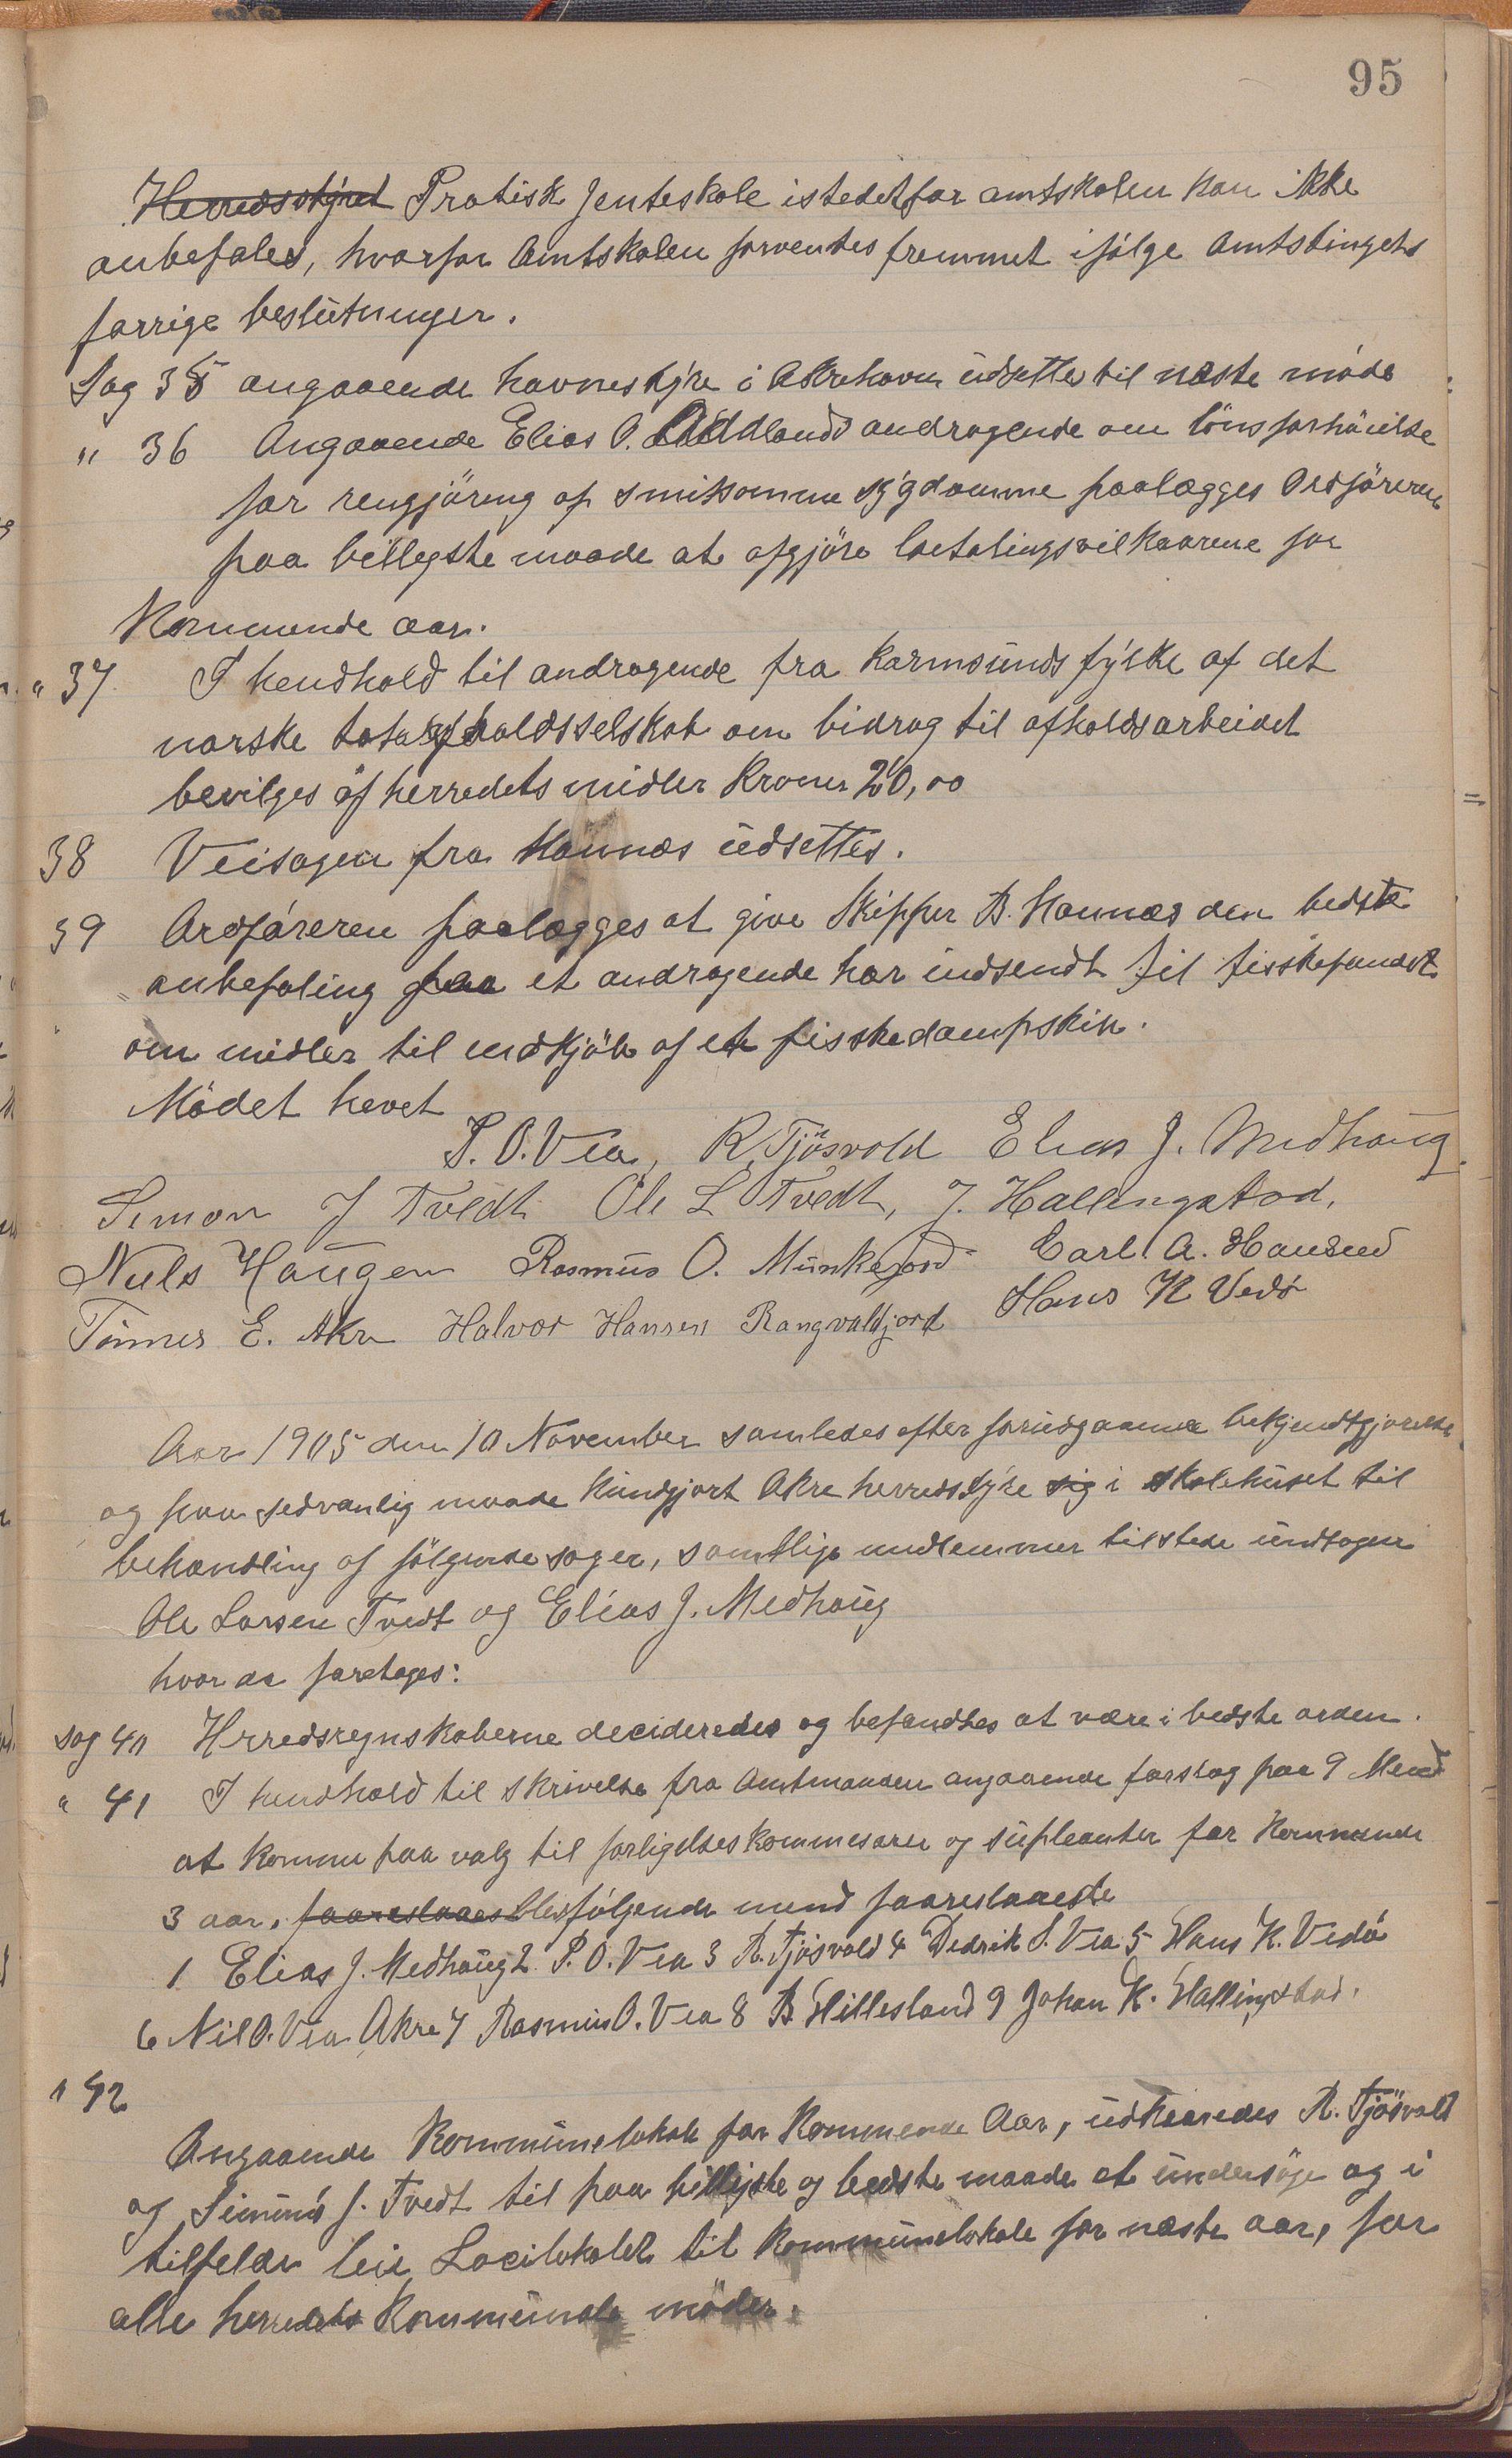 95
Herredsstyret Pratisk Jenteskole istedetfor amtskolen kan ikke
anbefales, hvorfor Amtskolen forventes fremmet ifølge Amtstingets
forrige beslutninger.
Sag 35 angaaende havnestyre i Akrehavn udsettes til næste möde
" 36 Angaaende Elias O. Ådlands andragende om lönsforhöielse
for rengjöring af smitsomme sygdomme paalægges Ordföreren
paa billigste maade at afgjöre betalingsvilkaarene for
Kommende aar.
" 37 I henhold til andragende fra Karmsunds fylke af det
norske totalafholdsselskab om bidrag til afholdsarbeidet
bevilges af herredets midler Kroner 20,00
38 Veisagen fra Haunæs udsettes.
39 Ordföreren paalægges at give Skipper B. Haunæs den bedste
anbefaling paa et andragende har indsendt til fiskefondet
om midler til indkjöb af et fisskedampskib.
Mödet hevet
P. O. Vea, R. Tjösvold Elias J. Medhaug
Simon J Tvedt Ole L Tvedt, J. Hallingstad.
Niels Haugen Rasmus O. Munkejord Carl A. Hansen
Tönnes E. Akre Halvor Hansen Rangvaldjord Hans K Vedö
Aar 1905 den 10 November samledes efter forudgaaende bekjendtgjörelse
og paa sedvanlig maade Kundgjort Akre herredstyre sig i skolehuset til
behandling af fölgende sager, samtlige medlemmer tilstede undtagen
Ole Larsen Tvedt og Elias J. Medhaug
hvor da foretages:
Sag 40 Herredsregnskaberne decideredes og befandtes at være i bedste orden.
" 41 I hendhold til skrivelse fra Amtmanden angaaende forslag paa 9 Mend
at komme paa valg til forligelseskommesærer og supleanter for Kommende
3 aar, faareslaaes blev fölgende mend faareslaaede
1 Elias J. Medhaug 2 P. O. Vea 3 R. Tjösvold 4 Dedrik S. Vea 5 Hans K. Vedö
6 Nil O. Vea Akre 7 Rasmus O. Vea 8 B. Hillesland 9 Johan K. Hallingstad.
" 42
Angaaende Kommunelokale for Kommende Aar, udkaaredes R. Tjösvold
og Simon J. Tvedt til paa billigste og bedste maade at undersöge og i
tilfelde leie Locilokalet til kommunelokale for næste aar, for
alle herredets Kommunale möder.